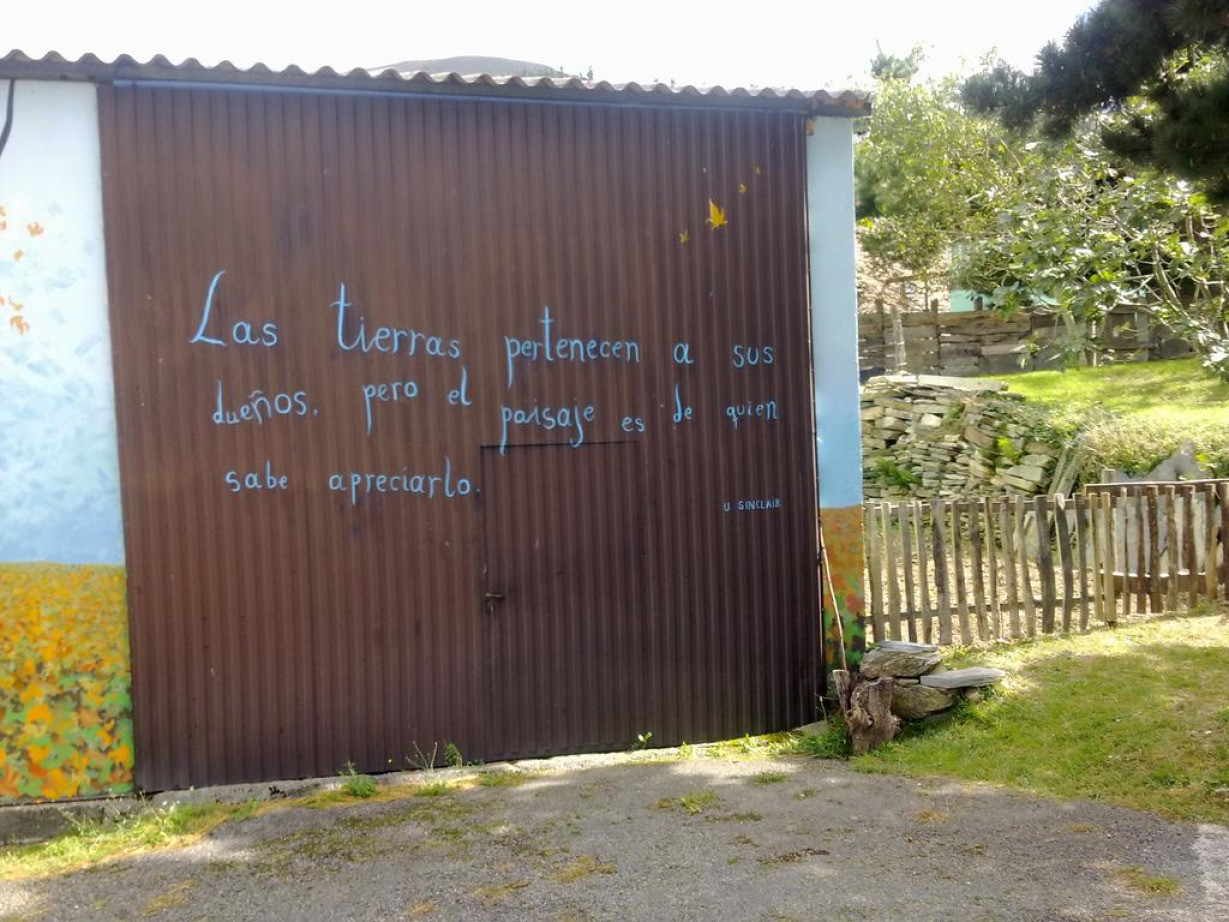 Las tierras pertenecen a sus
dueños, pero el paisaje es de quien
sabe apreciarlo.
U SINCLAIR